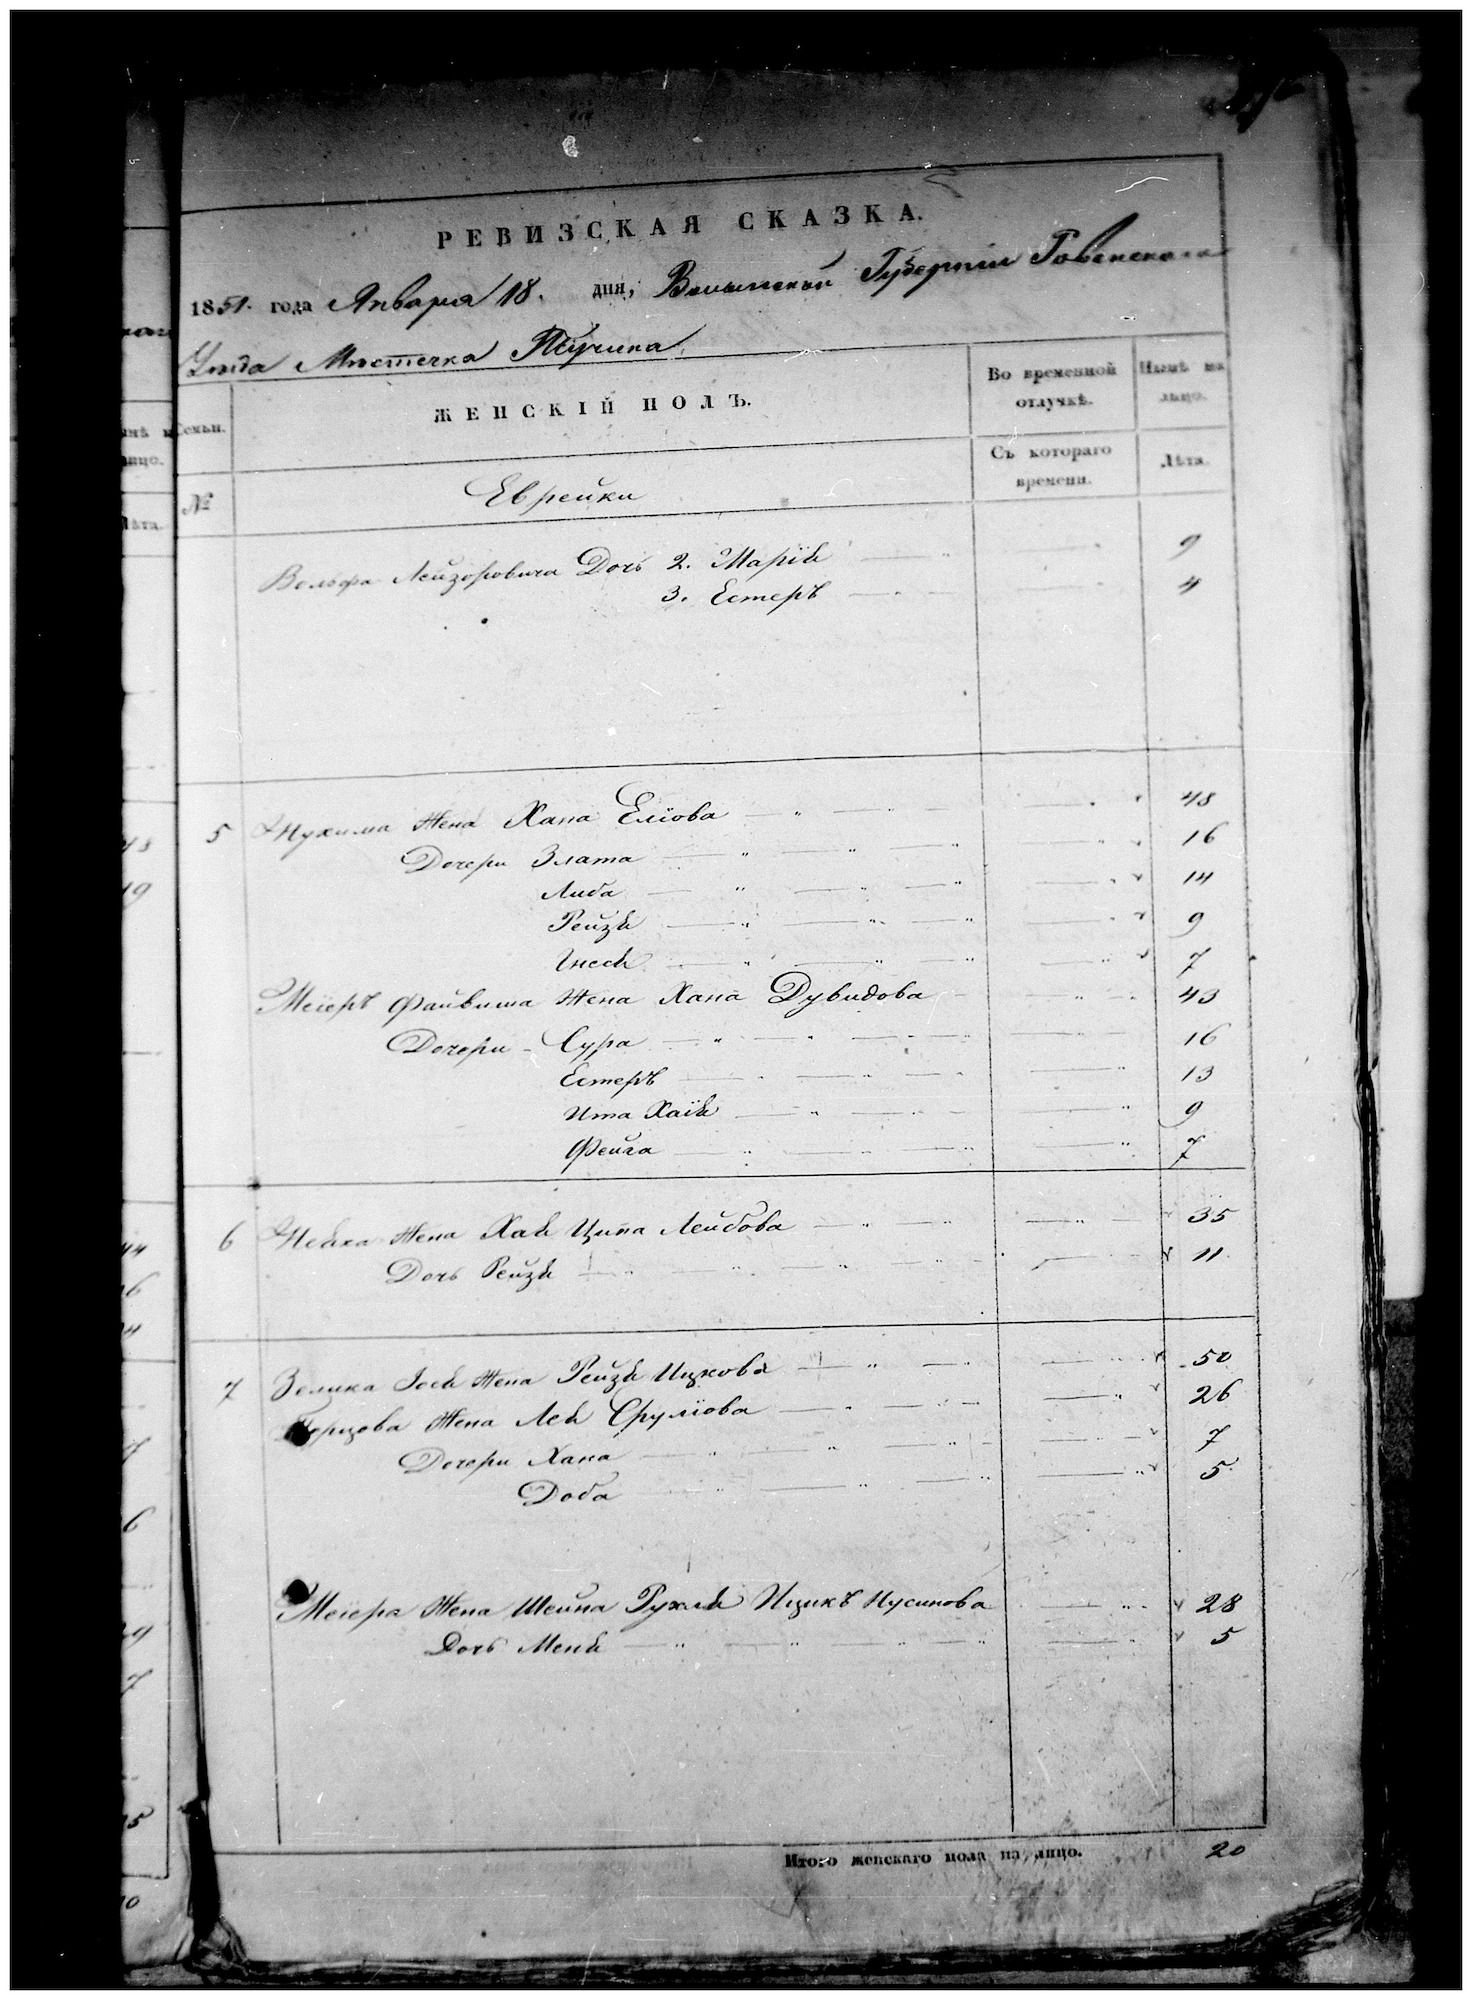 РЕВИЗСКАЯ СКАЗКА.
1851 года Января 18. дня, Волынской Губерніи Ровенскаго
Уезда Мястечка Тучина
Семьи.
ЖЕНСКІЙ ПОЛЪ.
Во временной отлучкѣ.
Нынѣ на лицо.
№
Еврейки
Съ котораго времени.
Лѣта.
Вольфа Лейзоровича Дочь 2. Марія 9
3. Естеръ 4
5 Нухима Жена Хана Еліова 48
Дочери Злата 16
Либа 14
Рейзя 9
Гнеся 7
Меіеръ Файвиша Жена Хана Дувидова 43
Дочери Сура 16
Естеръ 13
Ита Хаія 9
Фейга 7
6 Жена Хая Ципа Лейбова 35
Дочь Рейзя 11
7 Зелика Іося Жена Рейзя Ицкова 50
Жена Лея Сруліова 26
Дочери Хана 7
Доба 5
Меіера Жена Шейна Рухля Ицикъ Нусинова 28
Дочь Меня 5
Итого женскаго пола на лицо. 20